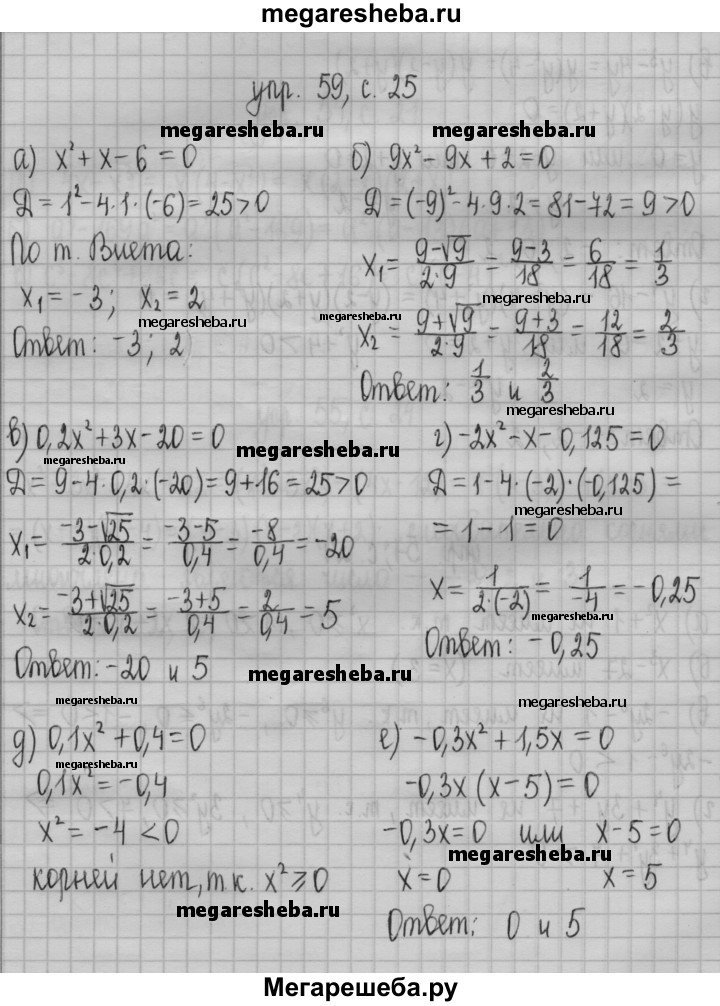 megaresheba.ru
упр. 59, с. 25
megaresheba.ru megaresheba.ru
а) x² + x − 6 = 0
Д = 1² − 4·1·(−6) = 25 > 0
По т. Виета:
x₁ = −3; x₂ = 2
megaresheba.ru
Ответ: −3; 2
б) 9x² − 9x + 2 = 0
Д = (−9)² − 4·9·2 = 81 − 72 = 9 > 0
x₁ = (9−√9)/(2·9) = (9−3)/18 = 6/18 = 1/3
megaresheba.ru
x₂ = (9+√9)/(2·9) = (9+3)/18 = 12/18 = 2/3
Ответ: 1/3 и 2/3
megaresheba.ru
в) 0,2x² + 3x − 20 = 0
megaresheba.ru megaresheba.ru
Д = 9 − 4·0,2·(−20) = 9 + 16 = 25 > 0
x₁ = (−3−√25)/(2·0,2) = (−3−5)/0,4 = −8/0,4 = −20
x₂ = (−3+√25)/(2·0,2) = (−3+5)/0,4 = 2/0,4 = 5
Ответ: −20 и 5
megaresheba.ru
г) −2x² − x − 0,125 = 0
megaresheba.ru
Д = 1 − 4·(−2)·(−0,125) =
= 1 − 1 = 0
x = 1/(2·(−2)) = 1/−4 = −0,25
megaresheba.ru
Ответ: −0,25
megaresheba.ru megaresheba.ru
д) 0,1x² + 0,4 = 0
megaresheba.ru
0,1x² = −0,4
x² = −4 < 0
корней нет, т.к. x² ⩾ 0
megaresheba.ru
е) −0,3x² + 1,5x = 0
−0,3x (x − 5) = 0
−0,3x = 0 или x − 5 = 0
megaresheba.ru
x = 0 x = 5
Ответ: 0 и 5
Мегарешеба.ру